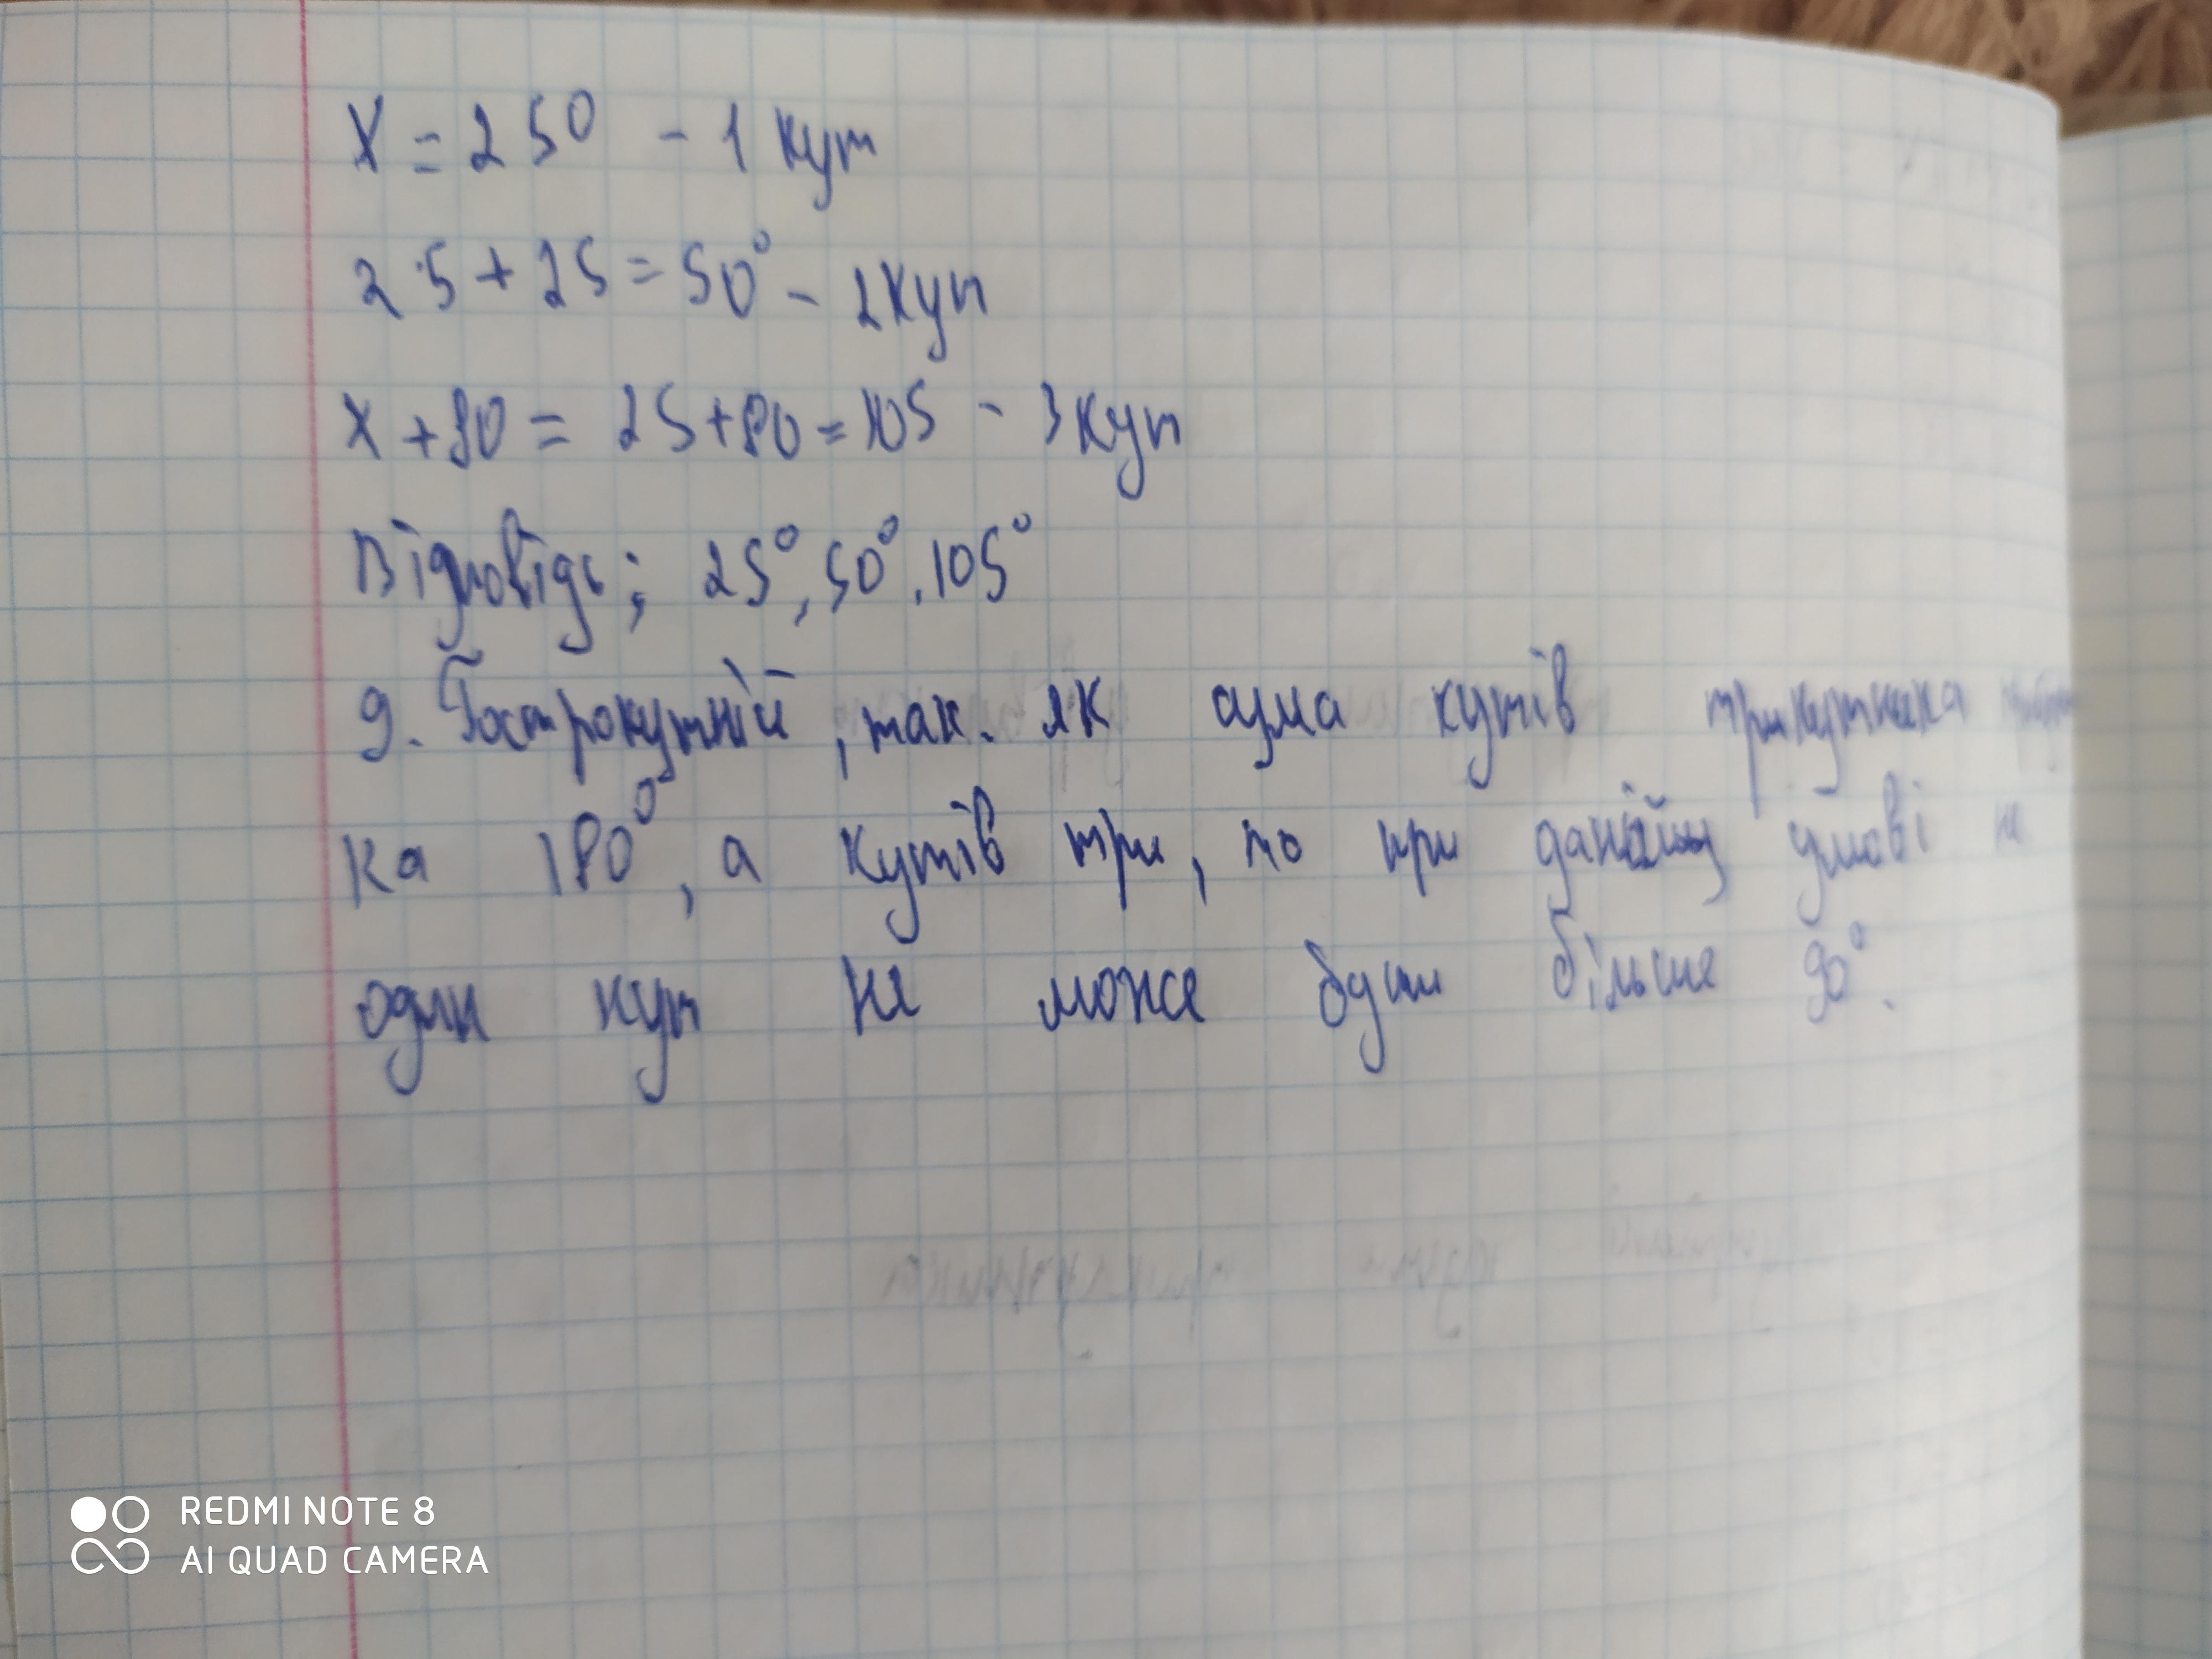 x = 25° - 1 кут
25 + 25 = 50° - 2 кут
x + 80 = 25 + 80 = 105 - 3 кут
Відповідь; 25°, 50°, 105°
9. Гострокутній, так. як сума кутів трикутника
ка 180°, а кутів три, то при умові
один кут не може бути більше 90°.
REDMI NOTE 8
AI QUAD CAMERA